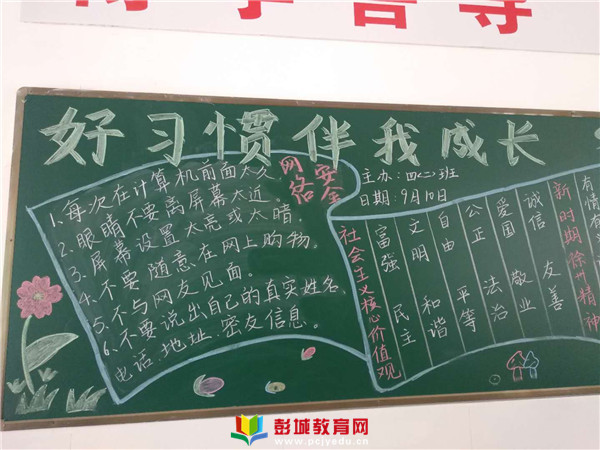 好习惯伴我成长
1.每次在计算机前面太久
2.眼睛不要离屏幕太近。
3.屏幕设置太亮或太暗。
4.不要随意在网上购物。
5.不与网友见面。
6.不要说出自己的真实姓名、
电话、地址、密友信息。
网络
安全
主办:四(二)班
日期:9月10日
社会主义核心价值观
富强 民主
文明 和谐
自由 平等
公正 法治
爱国 敬业
诚信 友善
新时期徐州精神
有情有
彭城教育网
www.pcjyedu.cn